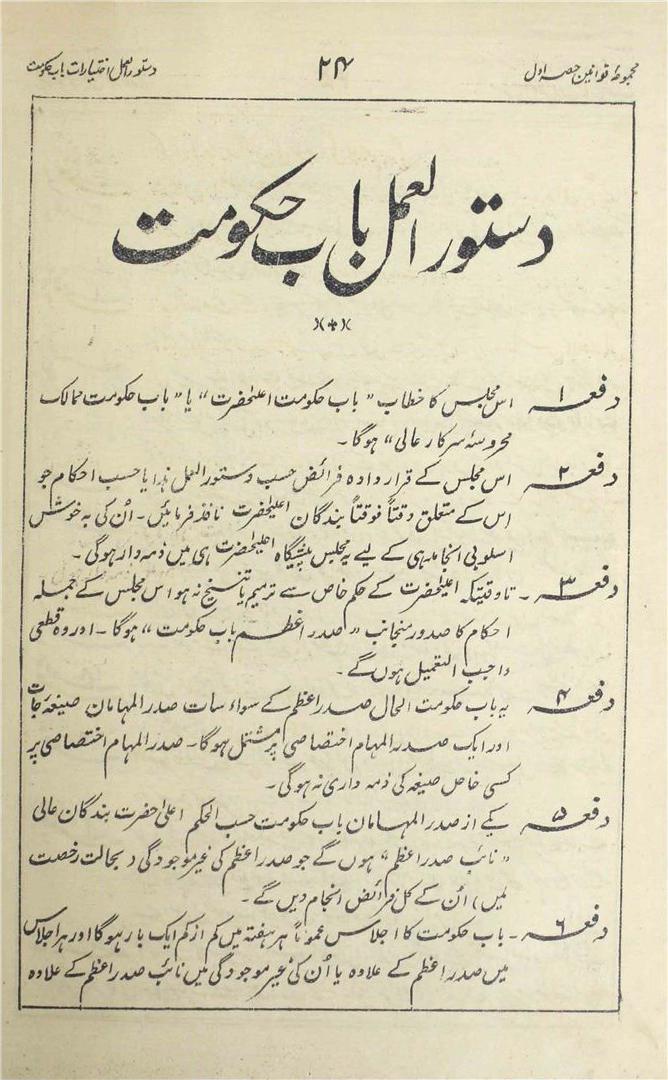 مجموعۂ قوانین حصہ اول
۲۴
دستور العمل اختیارات باب حکومت
دستور العمل باب حکومت
دفعہ ۱ اس مجلس کا خطاب "باب حکومت اعلیٰحضرت" یا "باب حکومت ممالک
محروسۂ سرکار عالی" ہوگا۔
دفعہ ۲ اس مجلس کے قرار دادہ فرائض حسب دستور العمل ہذا یا حسب احکام جو
اس کے متعلق وقتاً فوقتاً بندگان اعلیٰحضرت نافذ فرمائیں۔ اُن کی بہ خوش
اسلوبی انجام دہی کے لیے یہ مجلس پیشگاہ اعلیٰحضرت ہی میں ذمہ دار ہوگی۔
دفعہ ۳۔ تاوقتیکہ اعلیٰحضرت کے حکم خاص سے ترمیم یا تنسیخ نہ ہو اس مجلس کے جملہ
احکام کا صدور منجانب "صدر اعظم باب حکومت" ہوگا۔ اور وہ قطعی
واجب التعمیل ہوں گے۔
دفعہ ۴ یہ باب حکومت الحال صدر اعظم کے سواء سات صدر المہامان صیغہ جات
اور ایک صدر المہام اختصاصی پر مشتمل ہوگا۔ صدر المہام اختصاصی پر
کسی خاص صیغہ کی ذمہ داری نہ ہوگی۔
دفعہ ۵ یکے از صدر المہامان باب حکومت حسب الحکم اعلیٰ حضرت بندگان عالی
"نائب صدر اعظم" ہوں گے جو صدر اعظم کی غیر موجودگی (بحالت رخصت
میں) اُن کے کل فرائض انجام دیں گے۔
دفعہ ۶۔ باب حکومت کا اجلاس عموماً ہر ہفتہ میں کم از کم ایک بار ہوگا اور ہر اجلاس
میں صدر اعظم کے علاوہ یا اُن کی غیر موجودگی میں نائب صدر اعظم کے علاوہ